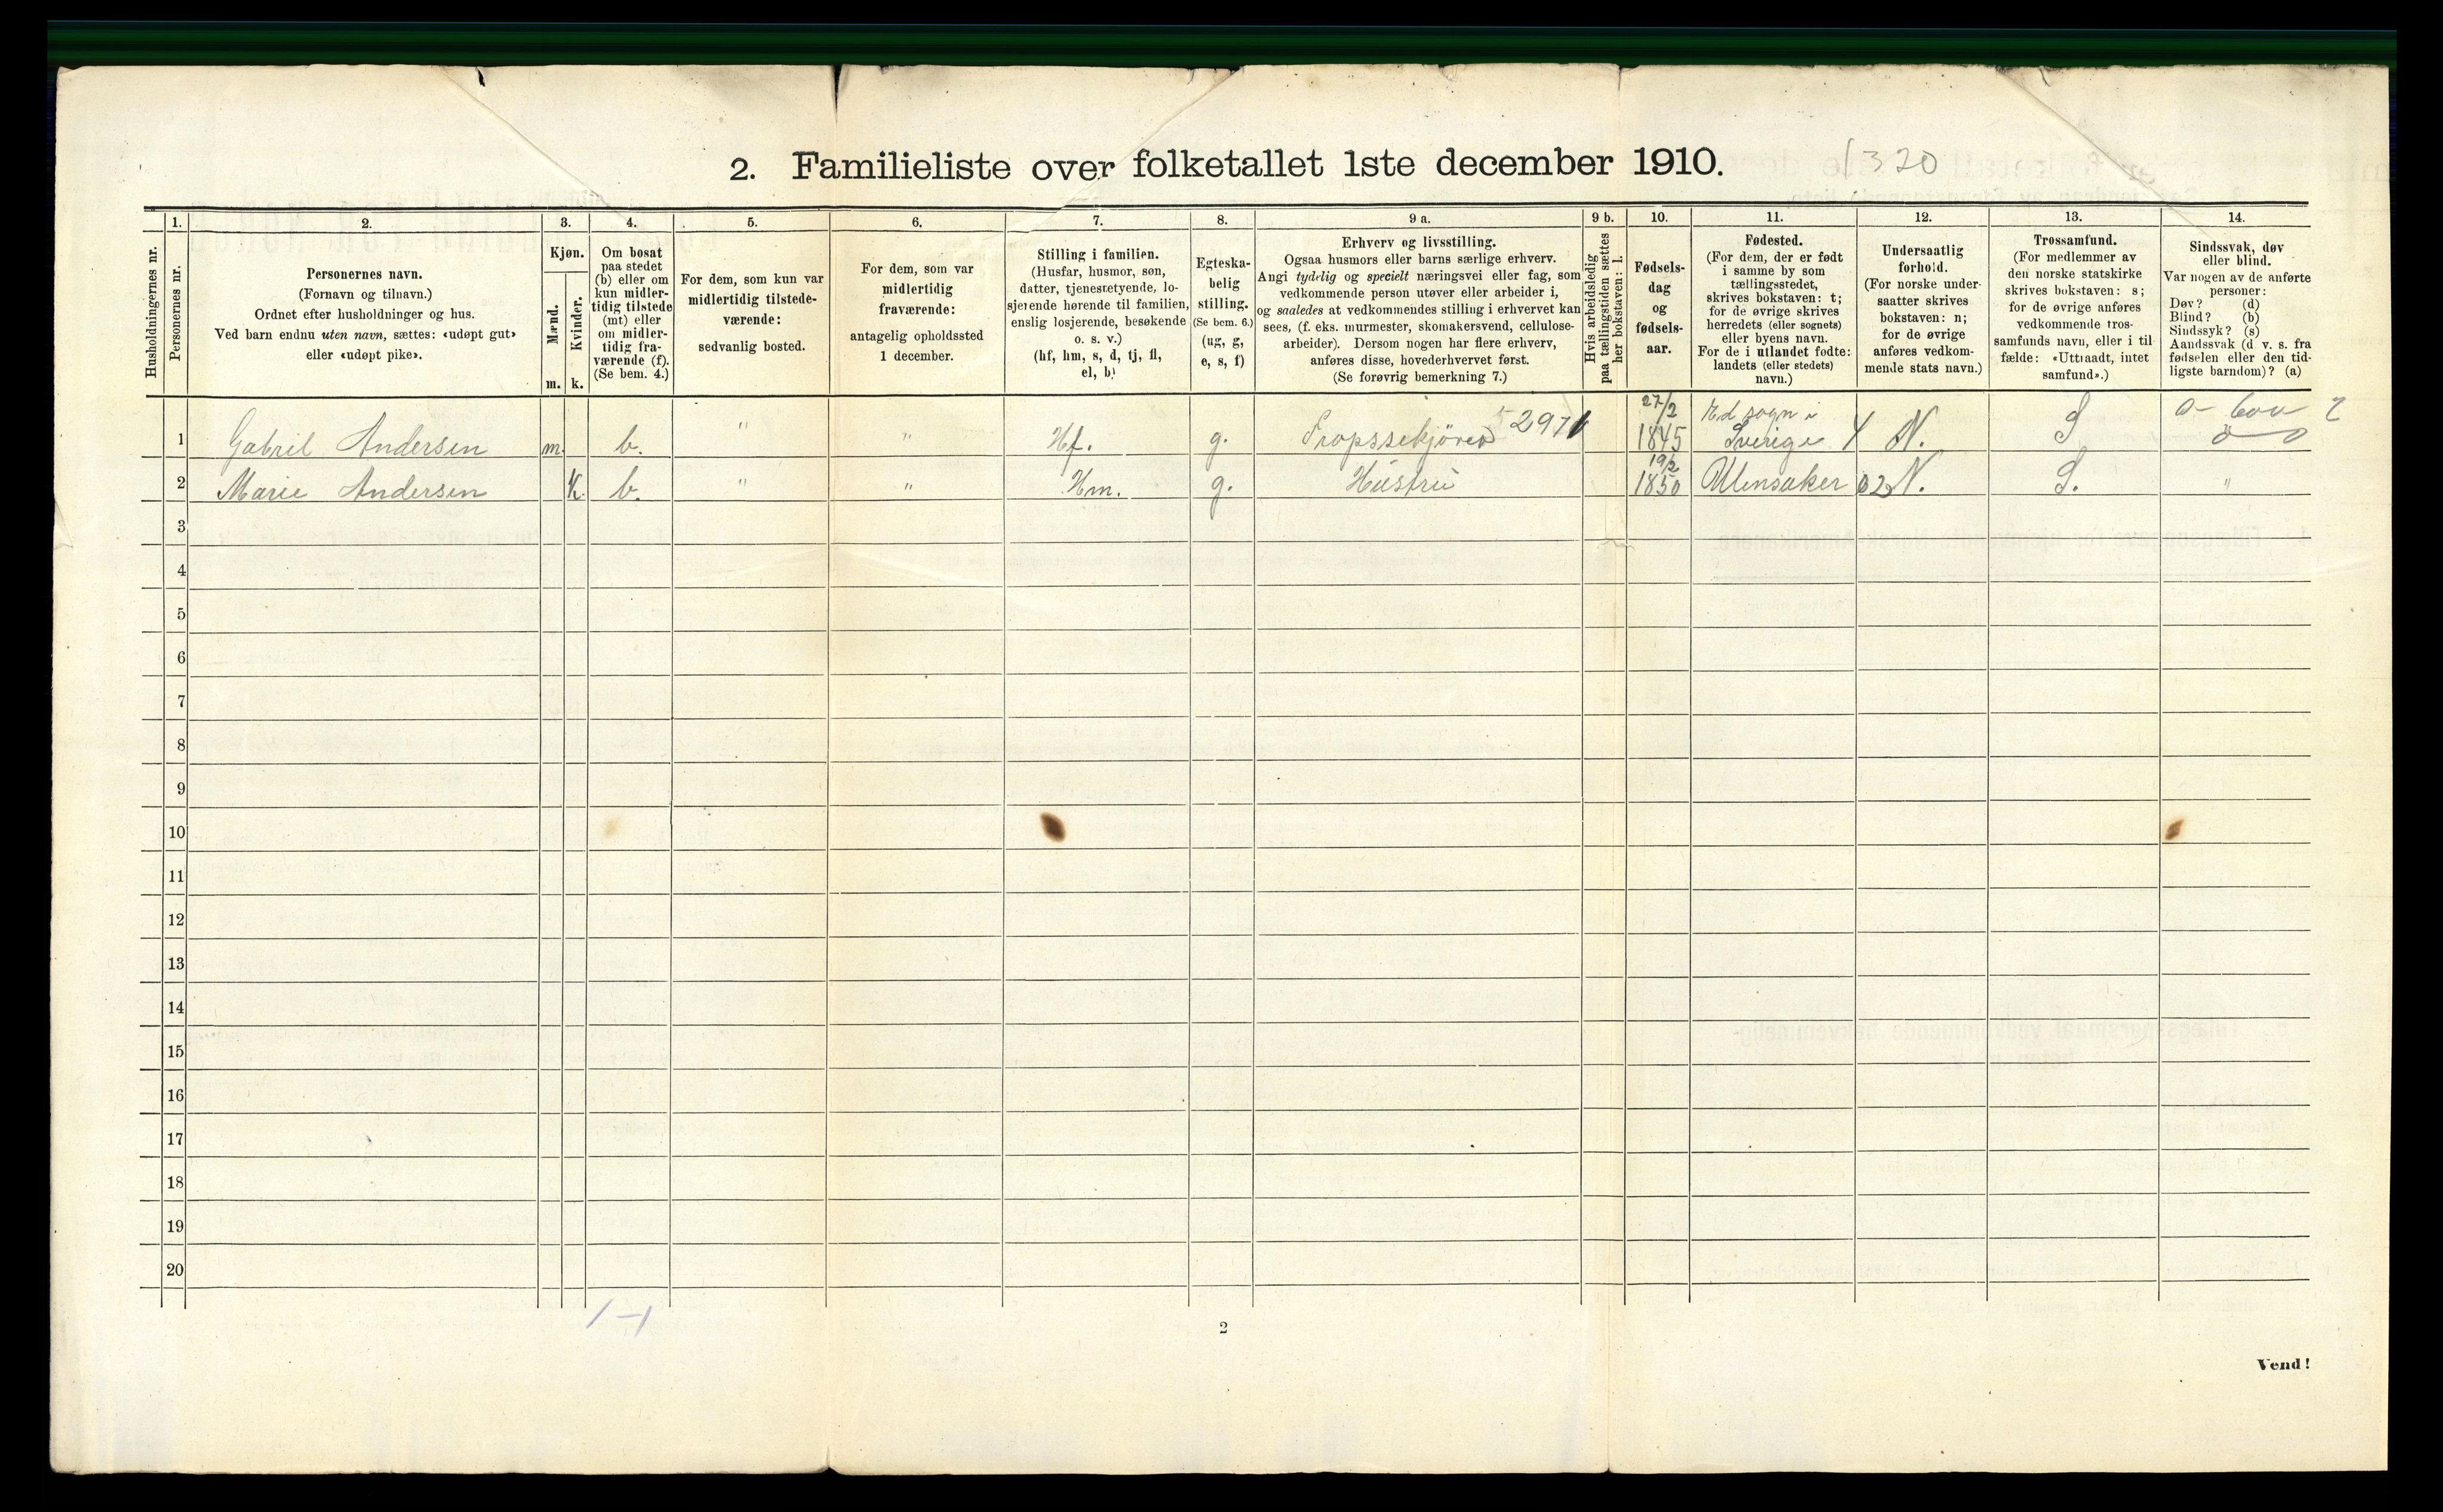 2. Familieliste over folketallet 1ste december 1910.
1320
Husholdningernes nr.
1.
Personernes nr.
2.
Personernes navn.
(Fornavn og tilnavn.)
Ordnet efter husholdninger og hus.
Ved barn endnu uten navn, sættes: «udøpt gut»
eller «udøpt pike».
3.
Kjøn.
Mænd.
Kvinder.
m. k.
4.
Om bosat
paa stedet
(b) eller om
kun midler-
tidig tilstede
(mt) eller
om midler-
tidig fra-
værende (f).
(Se bem. 4.)
5.
For dem, som kun var
midlertidig tilstede-
værende:
sedvanlig bosted.
6.
For dem, som var
midlertidig
fraværende:
antagelig opholdssted
1 december.
7.
Stilling i familien.
(Husfar, husmor, søn,
datter, tjenestetyende, lo-
sjerende hørende til familien,
enslig losjerende, besøkende
o. s. v.)
(hf, hm, s, d, tj, fl,
el, b)
8.
Egteska-
belig
stilling.
(Se bem. 6.)
(ug, g,
e, s, f)
9 a.
Erhverv og livsstilling.
Ogsaa husmors eller barns særlige erhverv.
Angi tydelig og specielt næringsvei eller fag, som
vedkommende person utøver eller arbeider i,
og saaledes at vedkommendes stilling i erhvervet kan
sees, (f. eks. murmester, skomakersvend, cellulose-
arbeider). Dersom nogen har flere erhverv,
anføres disse, hovederhvervet først.
(Se forøvrig bemerkning 7.)
9 b.
Hvis arbeidsledig
paa tællingstiden sættes
her bokstaven: l.
10.
Fødsels-
dag
og
fødsels-
aar.
11.
Fødested.
(For dem, der er født
i samme by som
tællingsstedet,
skrives bokstaven: t;
for de øvrige skrives
herredets (eller sognets)
eller byens navn.
For de i utlandet fødte:
landets (eller stedets)
navn.)
12.
Undersaatlig
forhold.
(For norske under-
saatter skrives
bokstaven: n;
for de øvrige
anføres vedkom-
mende stats navn.)
13.
Trossamfund.
(For medlemmer av
den norske statskirke
skrives bokstaven: s;
for de øvrige anføres
vedkommende tros-
samfunds navn, eller i til-
fælde: «Uttraadt, intet
samfund».)
14.
Sindssvak, døv
eller blind.
Var nogen av de anførte
personer:
Døv? (d)
Blind? (b)
Sindssyk? (s)
Aandssvak (d. v. s. fra
fødselen eller den tid-
ligste barndom)? (a)
1 Gabriel Andersen m. b. " " Hf. g. 2971 27/2 1845 Ed sogn i Sverige N. S
2 Marie Andersen k. b. " " Hm. g. Hustru 19/2 1850 Ullensaker 02 N. S. "
3
4
5
6
7
8
9
10
11
12
13
14
15
16
17
18
19
20
2
Vend!